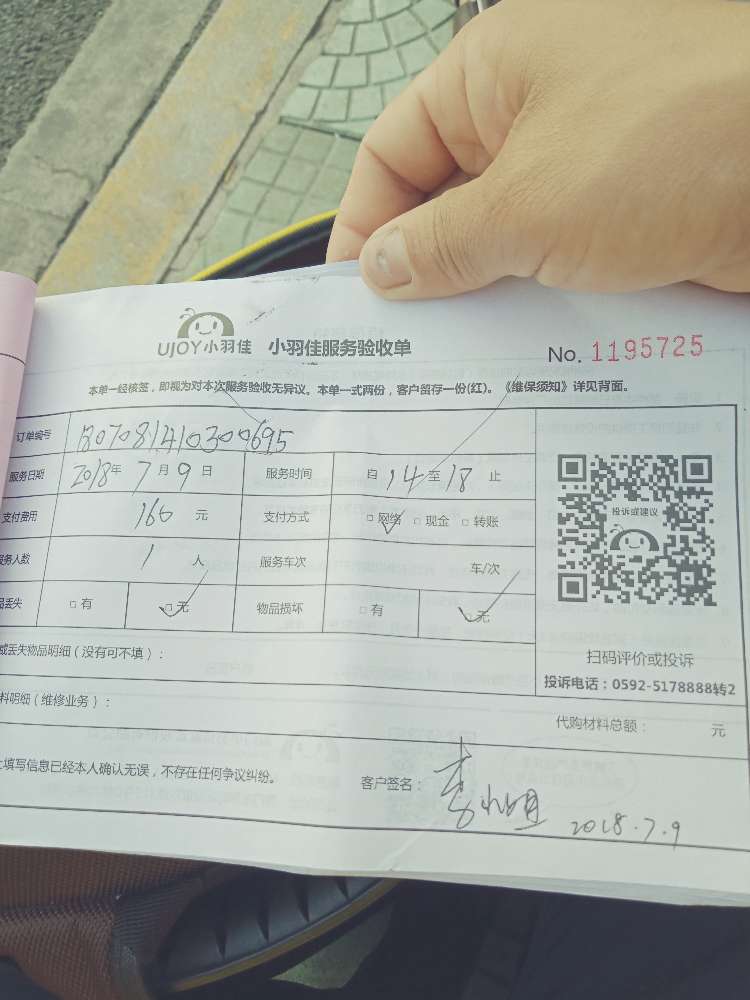 UJOY小羽佳 小羽佳服务验收单
No. 1195725
本单一经核签，即视为对本次服务验收无异议。本单一式两份，客户留存一份(红)。《维保须知》详见背面。
订单编号 B07081410300695
服务日期 2018年 7月 9日 服务时间 自 14 至 18 止
支付费用 160 元 支付方式 □网络 □现金 □转账
服务人数 1 人 服务车次 车/次
品丢失 □有 □无 物品损坏 □有 □无
投诉或建议
扫码评价或投诉
投诉电话：0592-5178888转2
或丢失物品明细（没有可不填）：
料明细（维修业务）： 代购材料总额： 元
上填写信息已经本人确认无误，不存在任何争议纠纷。 客户签名： 李 2018.7.9